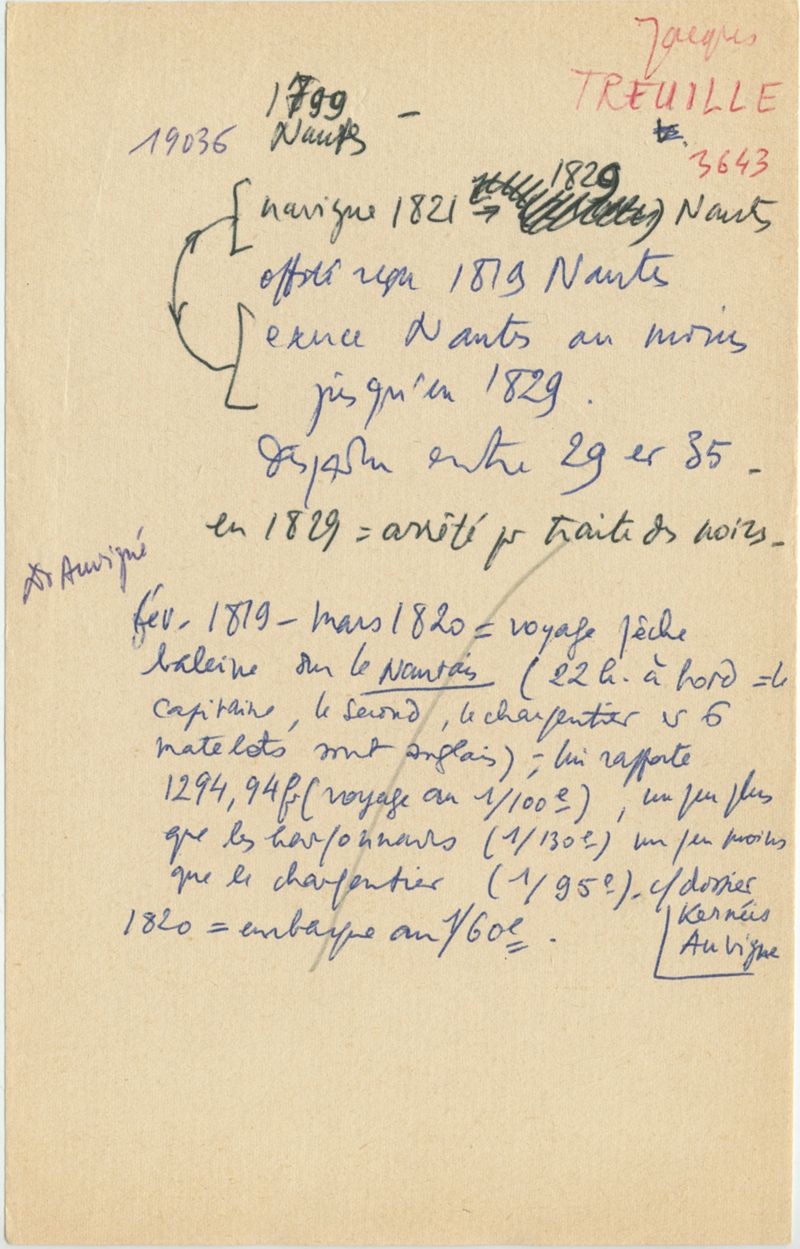 Jacques
TREUILLE
3643
1799 -
19036 Nantes
navigue 1821 → 1829 Nantes
off. sté reçu 1819 Nantes
exerce Nantes au moins
jusqu'en 1829.
Disparu entre 29 et 35 -
en 1829 = arrêté pr traite des noirs -
Dr Auvigné
fév. 1819 - mars 1820 = voyage pêche
baleine sur le Nantais (22 h. à bord = le
capitaine, le second, le charpentier et 6
matelots sont anglais) - lui rapporte
1294,94 fr (voyage au 1/100e), un peu plus
que les harponneurs (1/130e) un peu moins
que le charpentier (1/95e). c/dossier
Kernéis
Auvigne
1820 = embarque au 1/60e.